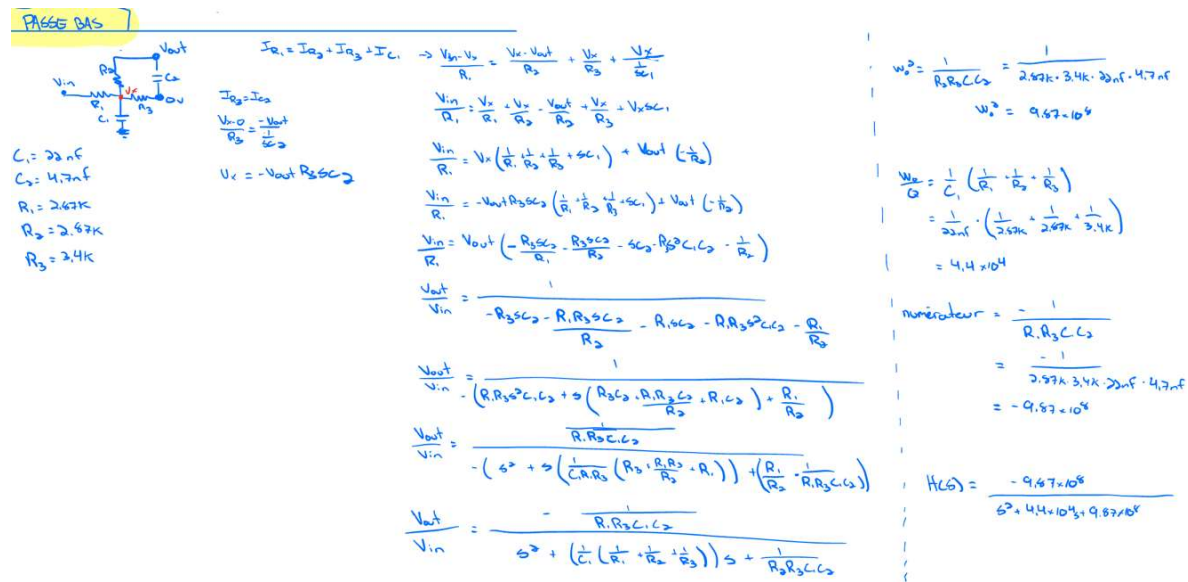 PASSE BAS
Vout
R2
C2
Vin
Vx
R1
R3
0V
C1
C1 = 22nf
C2 = 4.7nf
R1 = 2.87K
R2 = 2.87K
R3 = 3.4K
IR1 = IR2 + IR3 + IC1 → (Vin-Vx)/R1 = (Vx-Vout)/R2 + Vx/R3 + Vx/(1/sC1)
IR3 = IC2
(Vx-0)/R3 = -Vout/(1/sC2)
Vx = -Vout R3sC2
Vin/R1 = Vx/R1 + Vx/R2 - Vout/R2 + Vx/R3 + VxsC1
Vin/R1 = Vx(1/R1 + 1/R2 + 1/R3 + sC1) + Vout(-1/R2)
Vin/R1 = -VoutR3sC2(1/R1 + 1/R2 + 1/R3 + sC1) + Vout(-1/R2)
Vin/R1 = Vout(-R3sC2/R1 - R3sC2/R2 - sC2 - R3s²C1C2 - 1/R2)
Vout/Vin = 1/(-R3sC2 - R1R3sC2/R2 - R1sC2 - R1R3s²C1C2 - R1/R2)
Vout/Vin = 1/-(R1R3s²C1C2 + s(R3C2 + R1R3C2/R2 + R1C2) + R1/R2)
Vout/Vin = (1/R1R3C1C2)/-(s² + s(1/C1R1R3 (R3 + R1R3/R2 + R1)) + (R1/R2 · 1/R1R3C1C2))
Vout/Vin = -(1/R1R3C1C2)/(s² + (1/C1 (1/R1 + 1/R2 + 1/R3))s + 1/R2R3C1C2)
w0² = 1/R2R3C1C2 = 1/(2.87K · 3.4K · 22nf · 4.7nf)
w0² = 9.87×10⁸
w0/Q = 1/C1 (1/R1 + 1/R2 + 1/R3)
= 1/22nf · (1/2.87K + 1/2.87K + 1/3.4K)
= 4.4×10⁴
numérateur = -1/R1R3C1C2
= -1/(2.87K · 3.4K · 22nf · 4.7nf)
= -9.87×10⁸
H(s) = -9.87×10⁸/(s² + 4.4×10⁴s + 9.87×10⁸)